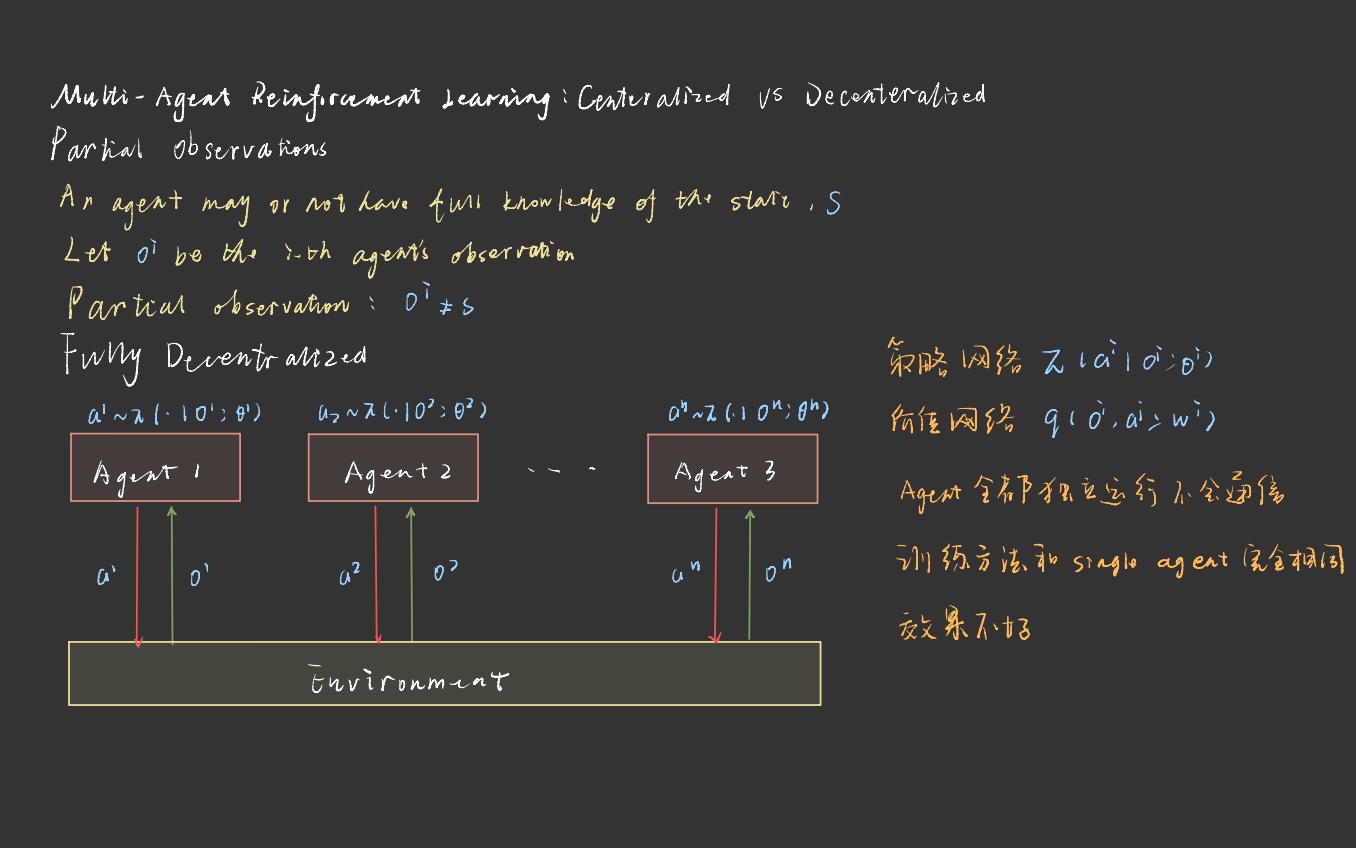 Multi-Agent Reinforcement Learning: Centeralized vs Decenteralized
Partial Observations
An agent may or not have full knowledge of the state, S
Let oⁱ be the i-th agent's observation
Partial observation: oⁱ ≠ s
Fully Decentralized
a¹~π(·|o¹;θ¹) a₂~π(·|o²;θ²) aⁿ~π(·|oⁿ;θⁿ)
Agent 1 Agent 2 --- Agent 3
a¹ o¹ a² o² aⁿ oⁿ
Environment
策略网络 π(aⁱ|oⁱ;θⁱ)
价值网络 q(oⁱ,aⁱ;wⁱ)
Agent全都独立运行不会通信
训练方法和single agent完全相同
效果不好